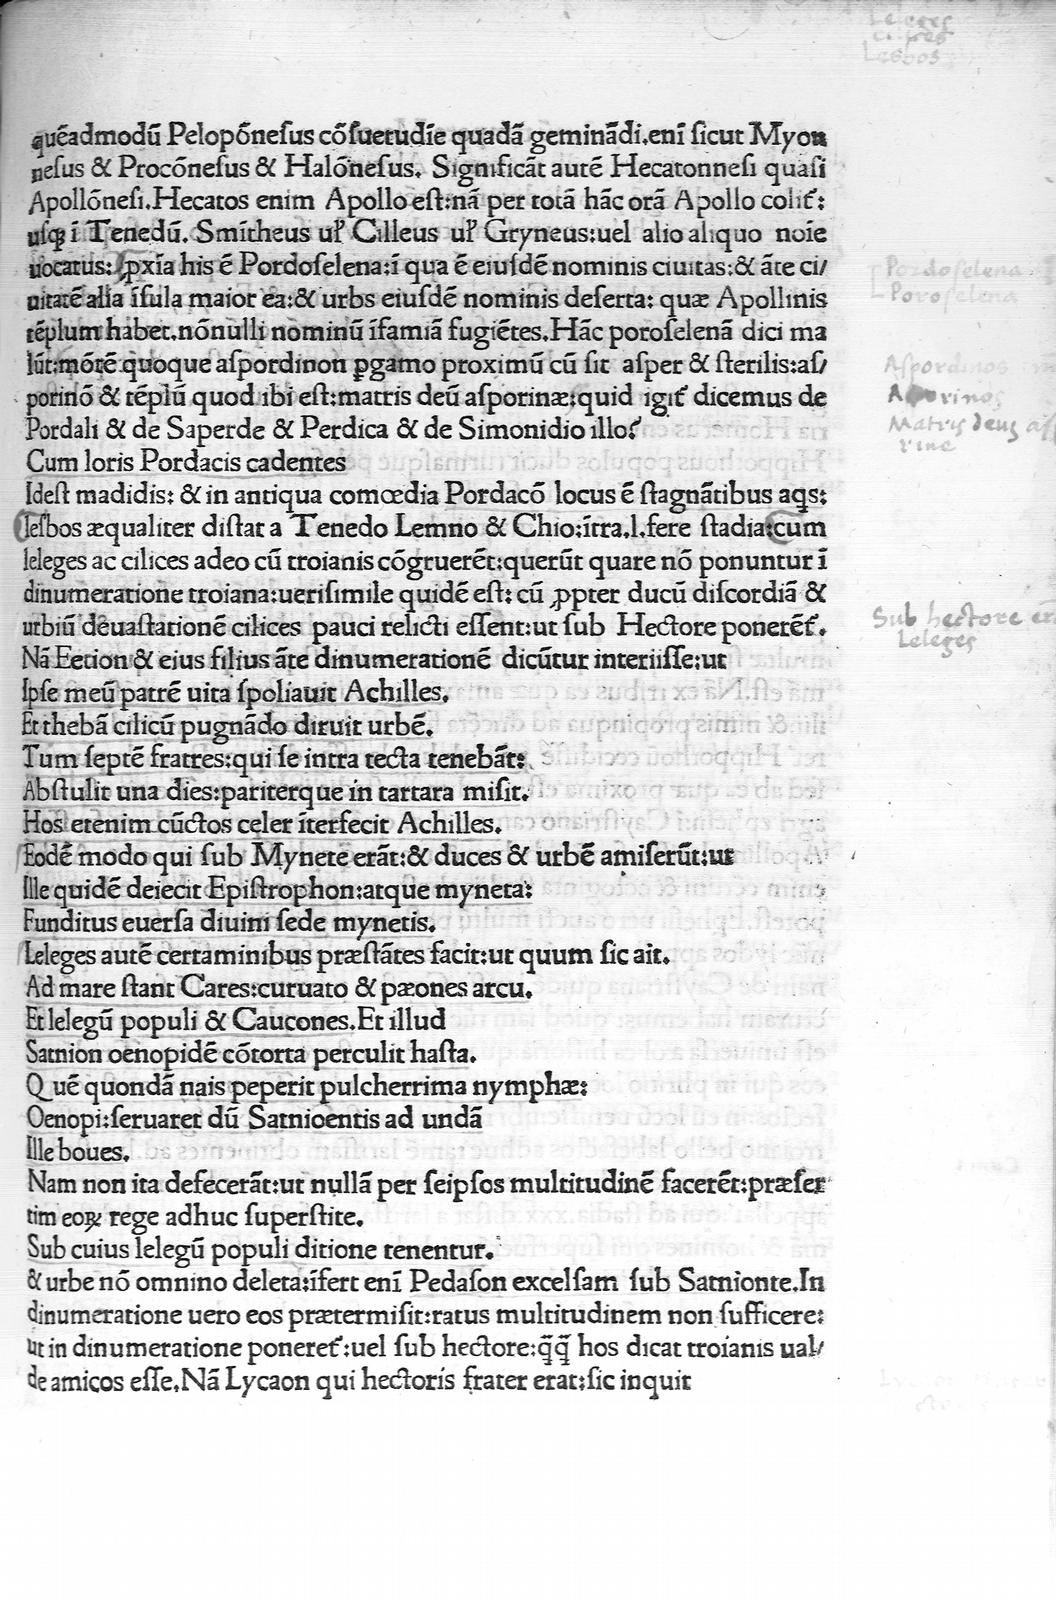 Leleges
cilices
Lesbos
quēadmodū Pelopōneſus cōſuetudīe quadā geminādi.enī ſicut Myon
neſus & Procōneſus & Halōneſus. Significāt autē Hecatonneſi quaſi
Apollōneſi.Hecatos enim Apollo eſt:nā per totā hāc orā Apollo colit᷑:
uſqꝫ ī Tenedū. Smītheus ul̉ Cilleus ul̉ Gryneus:uel alio aliquo noīe
uocatus: ꝓxīa his ē Pordoſelena:ī qua ē eiuſdē nominis ciuitas:& āte ci/
uitatē alia īſula maior ea:& urbs eiuſdē nominis deſerta: quæ Apollinis
tēplum habet.nōnulli nominū īfamiā fugiētes.Hāc poroſelenā dici ma
lūt:mōtē quoque aſpordinon ꝑgamo proximū cū ſit aſper & ſterilis:aſ/
porinō & tēplū quod ibi eſt:matris deū aſporinæ:quid igit᷑ dicemus de
Pordali & de Saperde & Perdica & de Simonidio illo?
Cum loris Pordacis cadentes
Ideſt madidis: & in antiqua comœdia Pordacō locus ē ſtagnātibus aqs:
leſbos æqualiter diſtat a Tenedo Lemno & Chio:ītra.l.fere ſtadia:cum
leleges ac cilices adeo cū troianis cōgruerēt:querūt quare nō ponuntur ī
dinumeratione troiana:ueriſimile quidē eſt: cū ꝓpter ducū diſcordiā &
urbiū deuaſtationē cilices pauci relicti eſſent:ut ſub Hectore ponerēt᷑.
Nā Eetion & eius filius āte dinumerationē dicūtur interiiſſe:ut
Ipſe meū patrē uita ſpoliauit Achilles.
Et thebā cilicū pugnādo diruit urbē.
Tum ſeptē fratres:qui ſe intra tecta tenebāt:
Abſtulit una dies:pariterque in tartara miſit.
Hos etenim cūctos celer īterfecit Achilles.
Eodē modo qui ſub Mynete erāt:& duces & urbē amiſerūt:ut
Ille quidē deiecit Epiſtrophon:atque myneta:
Funditus euerſa diuini ſede mynetis.
Leleges autē certaminibus præſtātes facit:ut quum ſic ait.
Ad mare ſtant Cares:curuato & pæones arcu.
Et lelegū populi & Caucones.Et illud
Satnion oenopidē cōtorta perculit haſta.
Quē quondā nais peperit pulcherrima nymphæ:
Oenopi:ſeruaret dū Satnioentis ad undā
Ille boues.
Nam non ita defecerāt:ut nullā per ſeipſos multitudinē facerēt:præſer
tim eoꝝ rege adhuc ſuperſtite.
Sub cuius lelegū populi ditione tenentur.
& urbe nō omnino deleta:īfert enī Pedaſon excelſam ſub Satnionte.In
dinumeratione uero eos prætermiſit:ratus multitudinem non ſufficere:
ut in dinumeratione poneret᷑:uel ſub hectore:q̄q̄ hos dicat troianis ual/
de amicos eſſe.Nā Lycaon qui hectoris frater erat:ſic inquit
Pordoſelena
Poroſelena
Aſpordinos
Matris deus aſ
rine
Sub hectore
Leleges